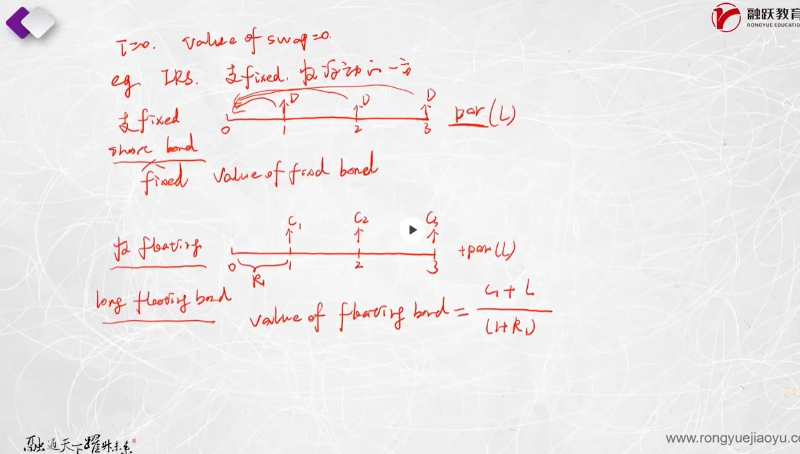 融跃教育
RONGYUE EDUCATION
T=0. Value of swap=0.
eg IRS. 支fixed. 收浮动的一方
D D D
支fixed par(L)
0 1 2 3
short bond
fixed Value of fixed bond
C₁ C₂ C₃
收 floating +par(L)
0 1 2 3
R₁
long floating bond
Value of floating bond = C₁+L
(1+R₁)
融通天下躍升未来
www.rongyuejiaoyu.com